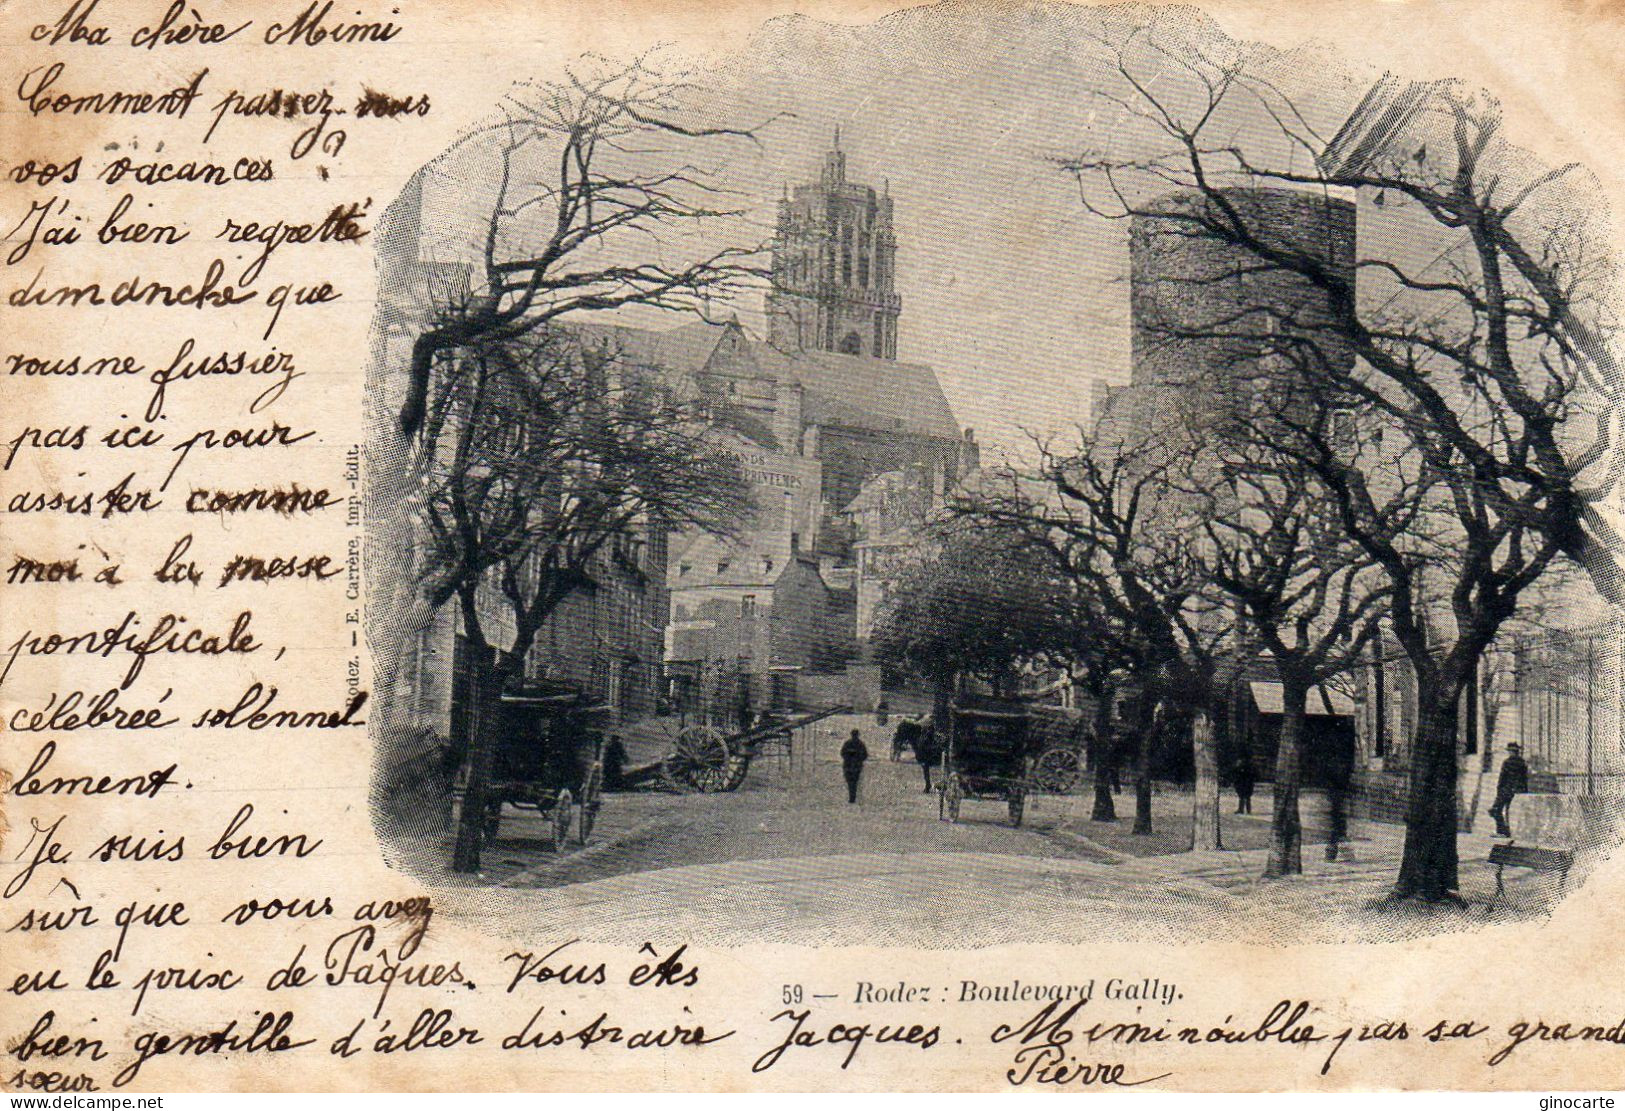 Ma chère Mimi
Comment passez-vous
vos vacances ?
J'ai bien regretté
dimanche que
vous ne fussiez
pas ici pour
assister comme
moi à la messe
pontificale,
célébreé solénnel
lement.
Je suis bien
sûr que vous avez
eu le prix de Pâques. Vous êtes
bien gentille d'aller distraire Jacques. Mimi n'oublie pas sa grande
sœur
Pierre
59 — Rodez : Boulevard Gally.
Rodez. — E. Carrère, Imp.-Édit.
GRANDS
PRINTEMPS
delcampe.net
ginocarte